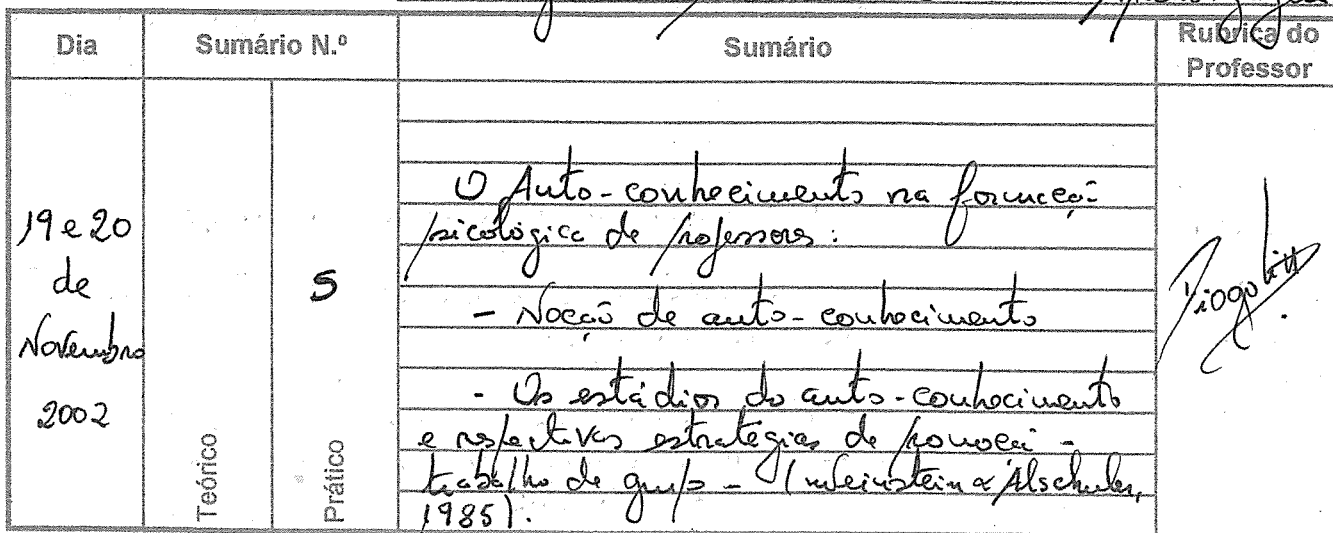 Dia
Sumário N.º
Sumário
Rubrica do
Professor
19 e 20
de
Novembro
2002
Teórico
5
Prático
O Auto-conhecimento na formação
psicológica de professores:
- Noção de auto-conhecimento
- Os estádios do auto-conhecimento
e respectivas estratégias de promoção -
trabalho de grupo - (Weinstein & Alschuler,
1985).
Diogo